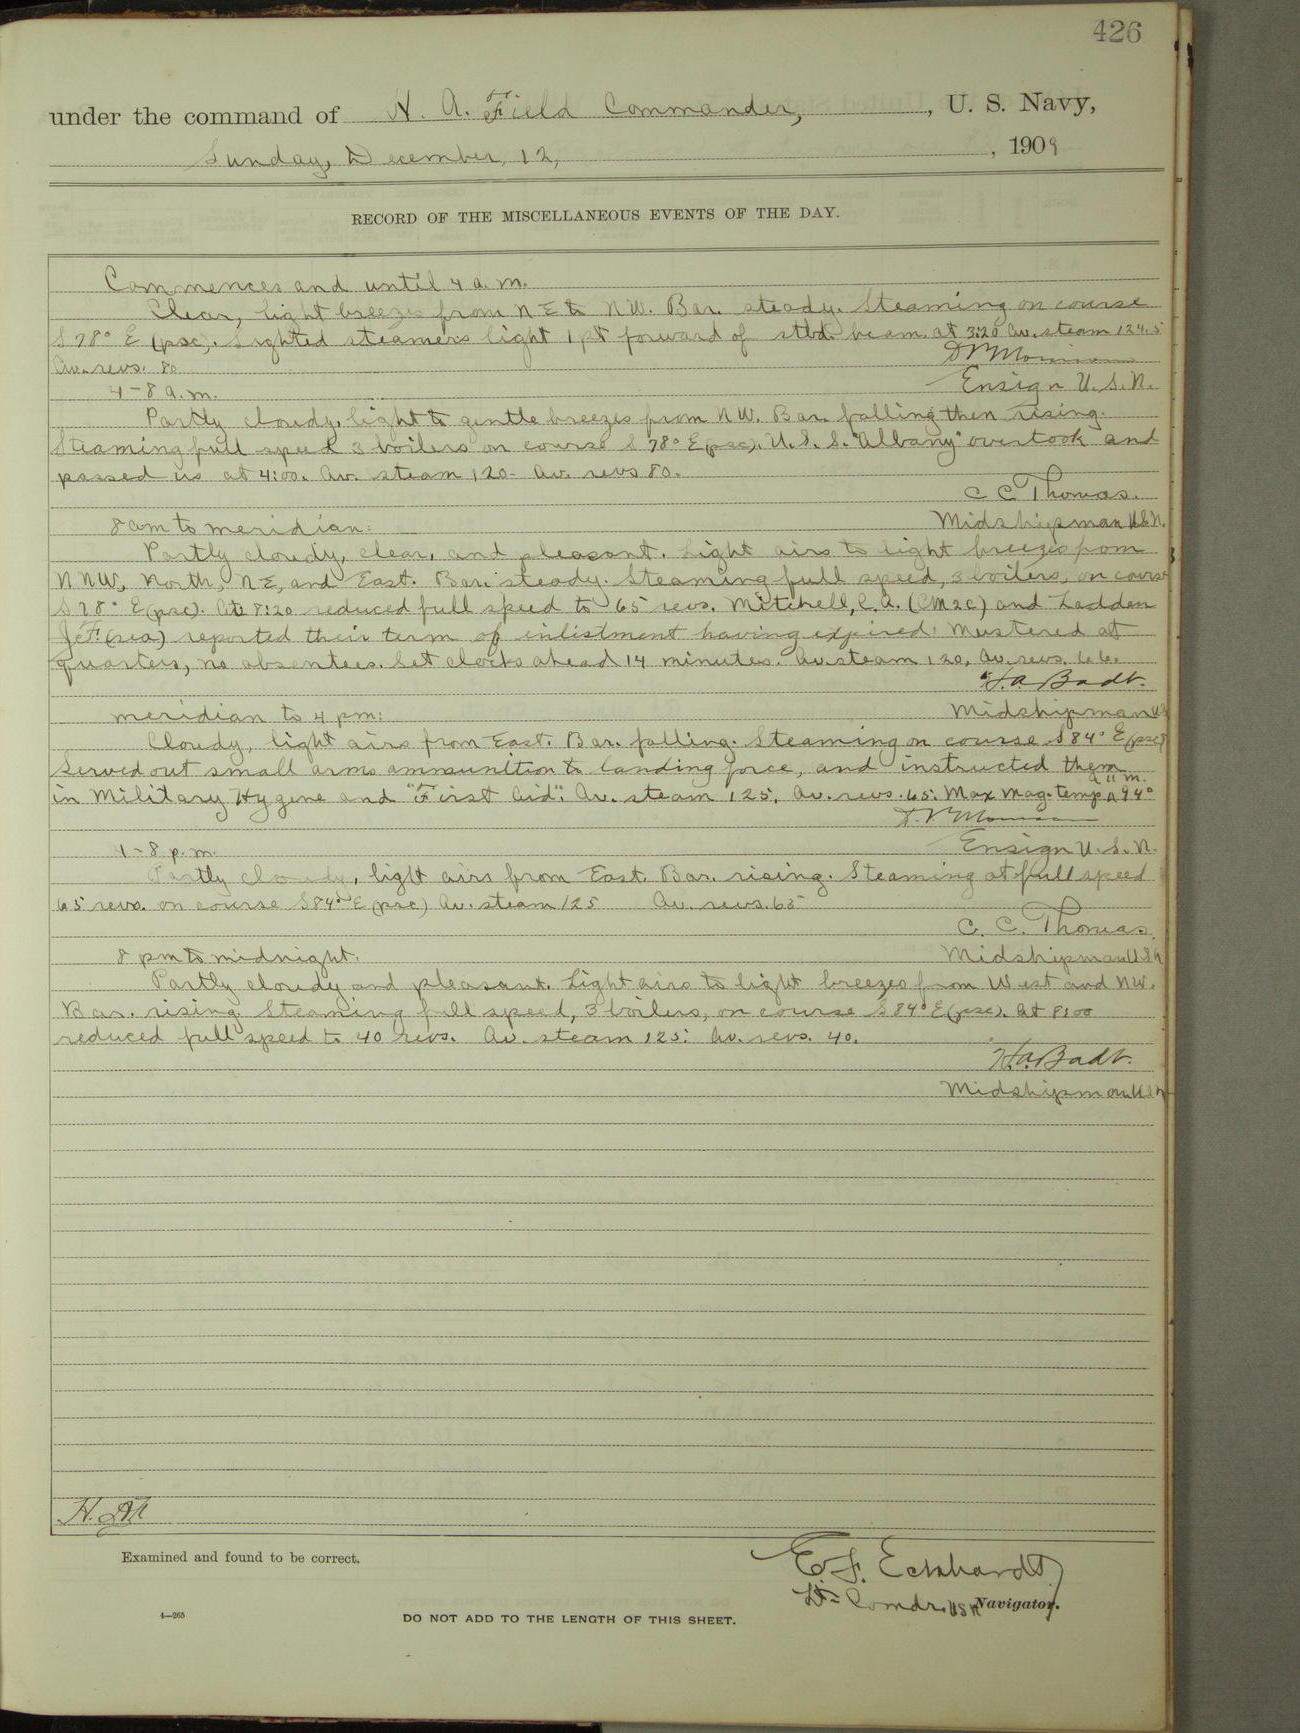 426
under the command of H. A. Field Commander, , U. S. Navy,
Sunday, December 12, , 1909
RECORD OF THE MISCELLANEOUS EVENTS OF THE DAY.
Commences and until 4 a. m.
Clear, light breezes from NE to NW. Bar. steady. Steaming on course
S 78° E (psc). Sighted steamers light 1 pt forward of stbd. beam at 3:20 Av. steam 124.5
Av. revs. 80
4-8 a.m.
Ensign U. S. N.
Partly cloudy, light to gentle breezes from NW. Bar. falling then rising.
Steaming full speed 3 boilers on course S 78° E (psc). U. S. S. "Albany" overtook and
passed us at 4:00. Av. steam 120- Av. revs 80.
C C Thomas.
8 am to meridian:
Midshipman U.S.N.
Partly cloudy, clear, and pleasant. Light airs to light breezes from
NNW, North, NE, and East. Bar. steady. Steaming full speed, 3 boilers, on course
S 78° E (psc). At 8:20 reduced full speed to 65 revs. Mitchell, C. A. (CM2C) and Ladden
J. F. (sea) reported their term of inlistment having expired. Mustered at
quarters, no absentees. Set clocks ahead 14 minutes. Av. steam 120, Av. revs. 66.
H. A. Badt.
meridian to 4 pm:
Midshipman US
Cloudy, light airs from East. Bar. falling. Steaming on course S 84° E (psc)
Served out small arms ammunition to landing force, and instructed them
in Military Hygene and "First Aid". Av. steam 125, Av. revs. 65. Max Mag. temp 94°
4-8 p. m.
Ensign U. S. N.
Partly cloudy, light airs from East. Bar. rising. Steaming at full speed
65 revs. on course S 84° E (psc) Av. steam 125 Av. revs. 65
C. C. Thomas.
8 pm to midnight.
Midshipman U.S.N
Partly cloudy and pleasant. Light airs to light breezes from West and NW.
Bar. rising. Steaming full speed, 3 boilers, on course S 84° E (psc). At 8:00
reduced full speed to 40 revs. Av. steam 125: Av. revs. 40.
H. A. Badt.
Midshipman U S N
Examined and found to be correct.
E. F. Eckhardt
Lt= Comdr. USN Navigator.
4—265
DO NOT ADD TO THE LENGTH OF THIS SHEET.